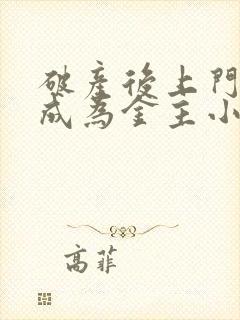 破產後上門
成為金主小
高菲